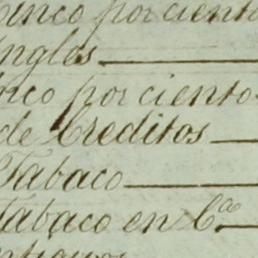 Cinco por ciento
Ingles
inco por ciento
de Creditos
Tabaco
Tabaco en C.ª